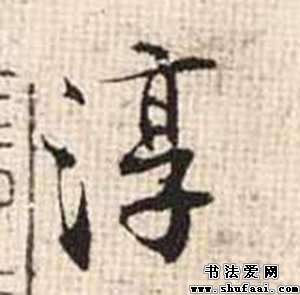 淳
书法爱网
www.shufaai.com